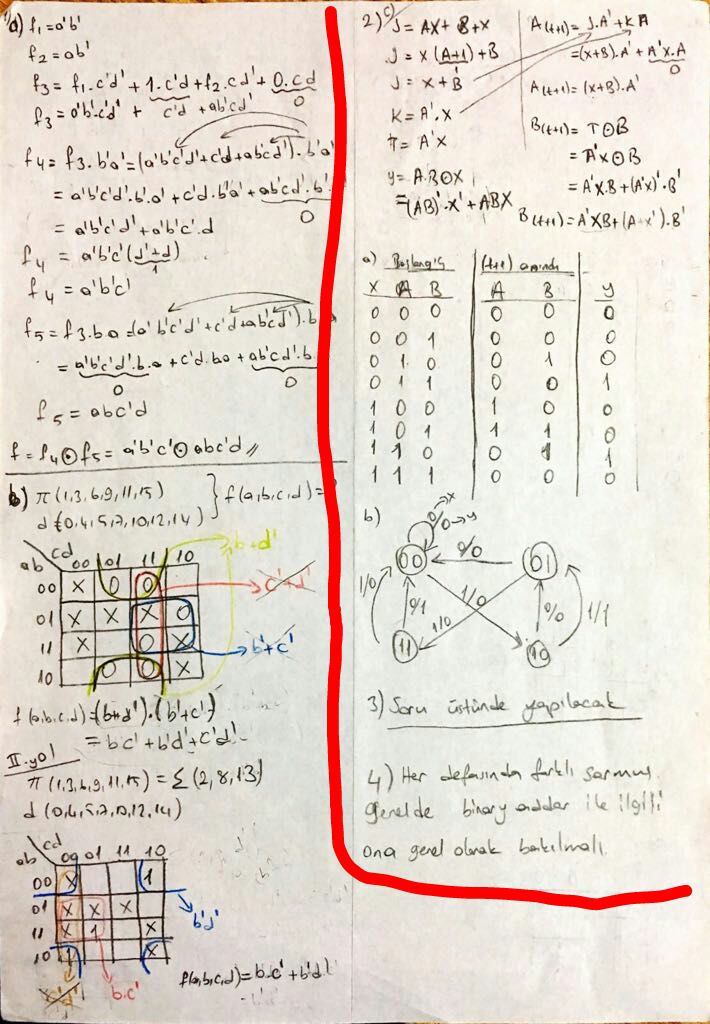 1) a) f₁ = a'b'
f₂ = ab'
f₃ = f₁.c'd' + 1.c'd + f₂.cd' + 0.cd
0
f₃ = a'b'.c'd' + c'd + ab'cd'
f₄ = f₃.b'a' = (a'b'c'd' + c'd + ab'cd').b'a'
= a'b'c'd'.b'.a' + c'd.b'a' + ab'cd'.b'.
0
= a'b'c'd' + a'b'c'.d
f₄ = a'b'c'(d'+d)
1
f₄ = a'b'c'
f₅ = f₃.b.a = (a'b'c'd' + c'd + ab'cd').b
= a'b'c'd'.b.a + c'd.ba + ab'cd'.b.
0 0
f₅ = abc'd
f = f₄⊙f₅ = a'b'c'⊙abc'd //
b) π(1,3,6,9,11,15)
d(0,4,5,7,10,12,14) } f(a,b,c,d) =
ab cd 00 01 11 10
00 X 0 0
01 X X X 0
11 X 0 X
10 0 0 X
b+d'
c'+d'
b'+c'
f(a,b,c,d) = (b+d').(b'+c')
= bc' + b'd' + c'd'
II. yol
π(1,3,6,9,11,15) = Σ(2,8,13)
d(0,4,5,7,10,12,14)
ab cd 00 01 11 10
00 X 1
01 X X X
11 X 1 X
10 1 X
b'd'
c'd'
b.c'
f(a,b,c,d) = b.c' + b'd'
2) c) J = AX + B + X
J = X(A+1) + B
J = X + B
K = A'.X
T = A'X
y = A.B⊙X
= (AB)'.X' + ABX
A(t+1) = J.A' + K A
= (x+B).A' + A'X.A
0
A(t+1) = (x+B).A'
B(t+1) = T⊙B
= A'X⊙B
= A'X.B + (A'x)'.B'
B(t+1) = A'XB + (A+x').B'
a) Başlangıç (t+1) anında
X A B A B y
0 0 0 0 0 0
0 0 1 0 0 0
0 1 0 0 1 0
0 1 1 0 0 1
1 0 0 1 0 0
1 0 1 1 1 0
1 1 0 0 1 1
1 1 1 0 0 0
b)
0/0 → x
→ y
00 0/0 01
1/0 0/1 1/0 1/0 0/0 1/1
11 10
3) Soru üstünde yapılacak
4) Her defasında farklı sormuş.
genelde binary adder ile ilgili
ona genel olarak bakılmalı.